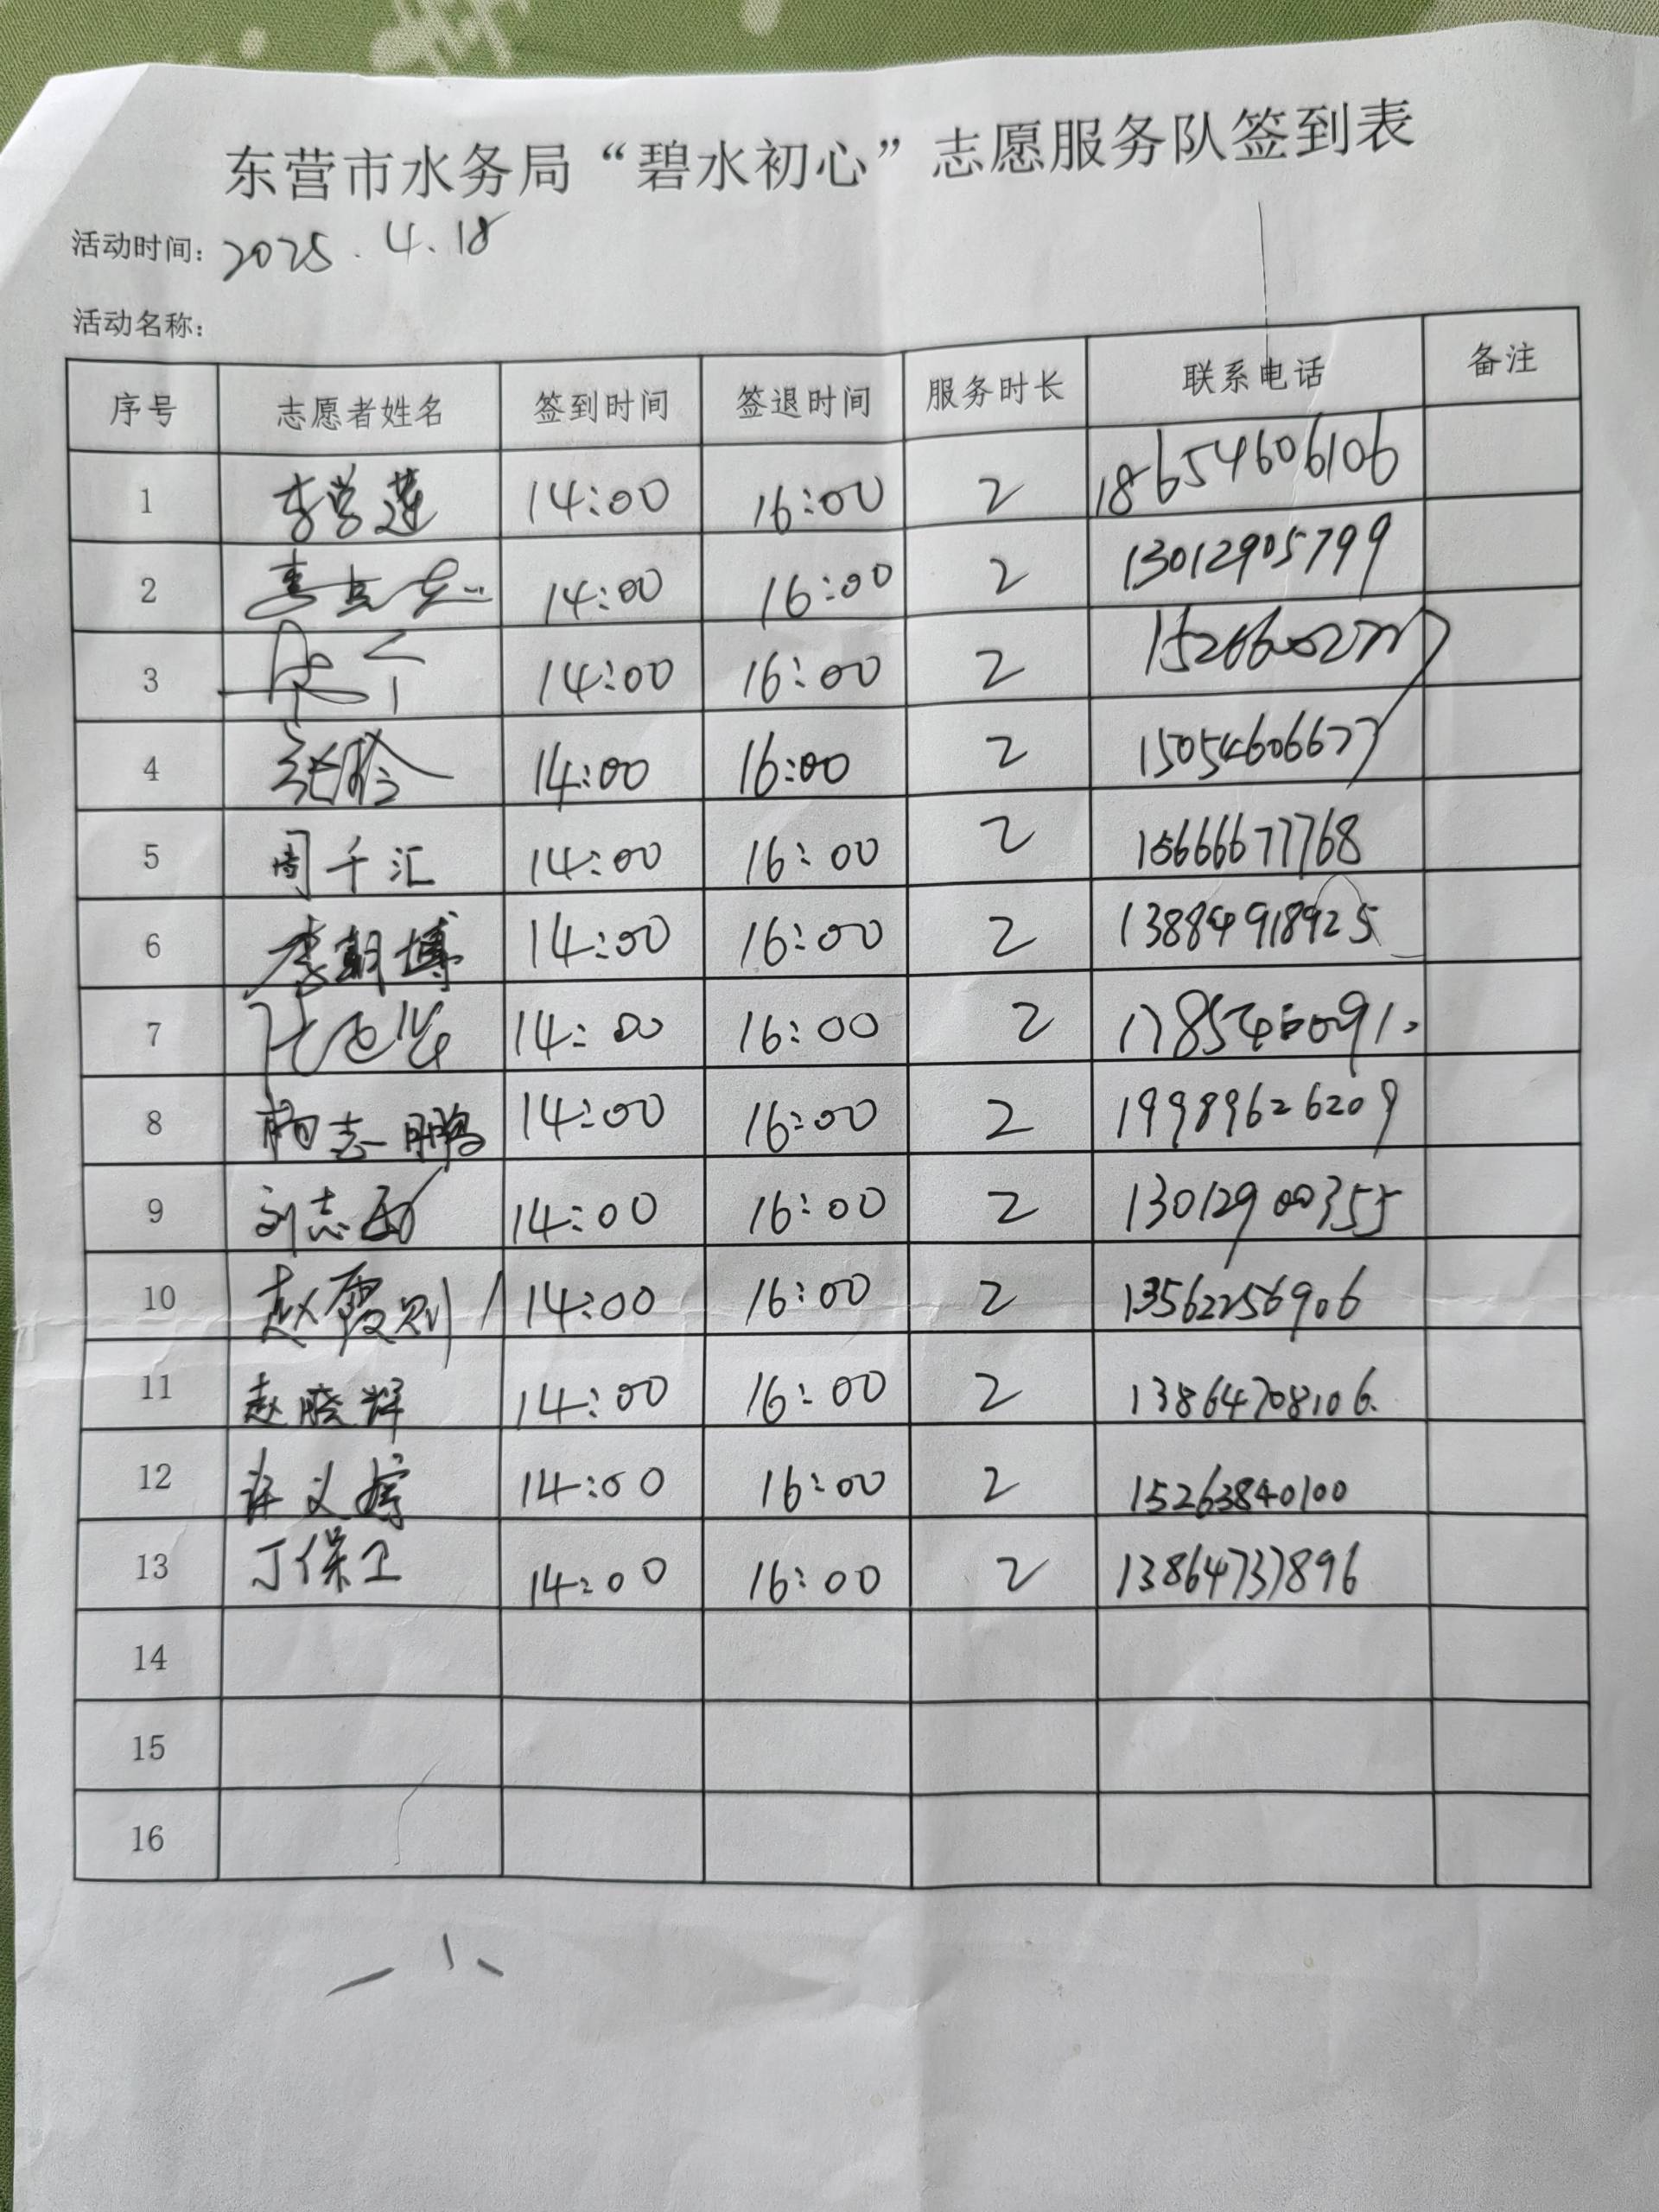 东营市水务局“碧水初心”志愿服务队签到表
活动时间：2025.4.18
活动名称：
序号 志愿者姓名 签到时间 签退时间 服务时长 联系电话 备注
1 李学莲 14:00 16:00 2 18654606106
2 14:00 16:00 2 13012905799
3 14:00 16:00 2
4 张玲 14:00 16:00 2 15054606677
5 周千汇 14:00 16:00 2 15666677768
6 李朝博 14:00 16:00 2 13884918925
7 14:00 16:00 2
8 杨志鹏 14:00 16:00 2 19989626209
9 刘志 14:00 16:00 2 13012900355
10 赵霞 14:00 16:00 2 13562256906
11 赵晓辉 14:00 16:00 2 13864708106
12 许义 14:00 16:00 2 15263840100
13 丁保卫 14:00 16:00 2 13864737896
14
15
16